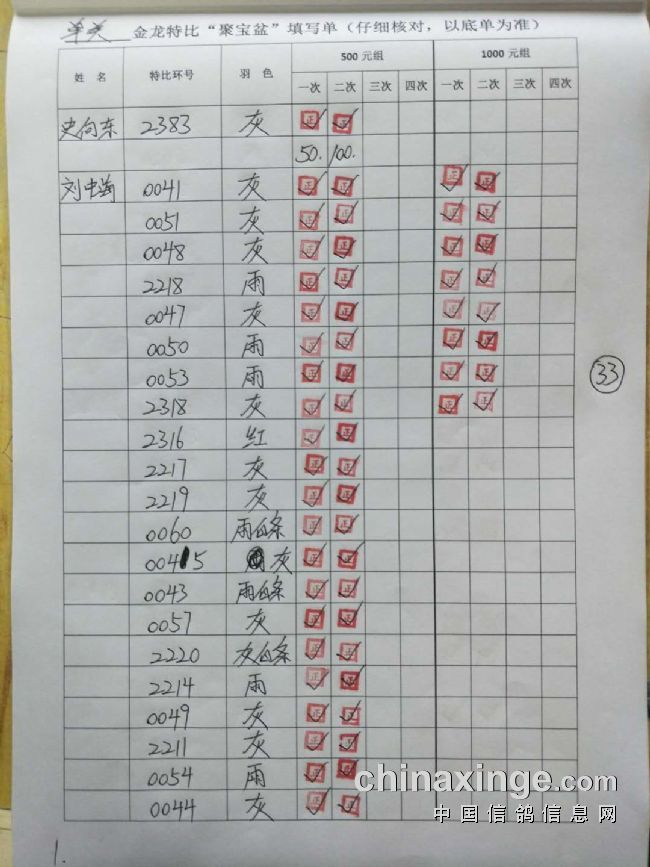 单关 金龙特比“聚宝盆”填写单（仔细核对，以底单为准）
姓 名 特比环号 羽 色 500 元组 1000 元组
一次 二次 三次 四次 一次 二次 三次 四次
史向东 2383 灰 正 正
50. 100.
刘中海 0041 灰 正 正 正 正
0051 灰 正 正 正 正
0048 灰 正 正 正 正
2218 雨 正 正 正 正
0047 灰 正 正 正 正
0050 雨 正 正 正 正
0053 雨 正 正 正 正
2318 灰 正 正 正 正
2316 红 正 正
2217 灰 正 正
2219 灰 正 正
0060 雨白条 正 正
0045 灰 正 正
0043 雨白条 正 正
0057 灰 正 正
2220 灰白条 正 正
2214 雨 正 正
0049 灰 正 正
2211 灰 正 正
0054 雨 正 正
0044 灰 正 正
33
1.
chinaxinge.com
中国信鸽信息网